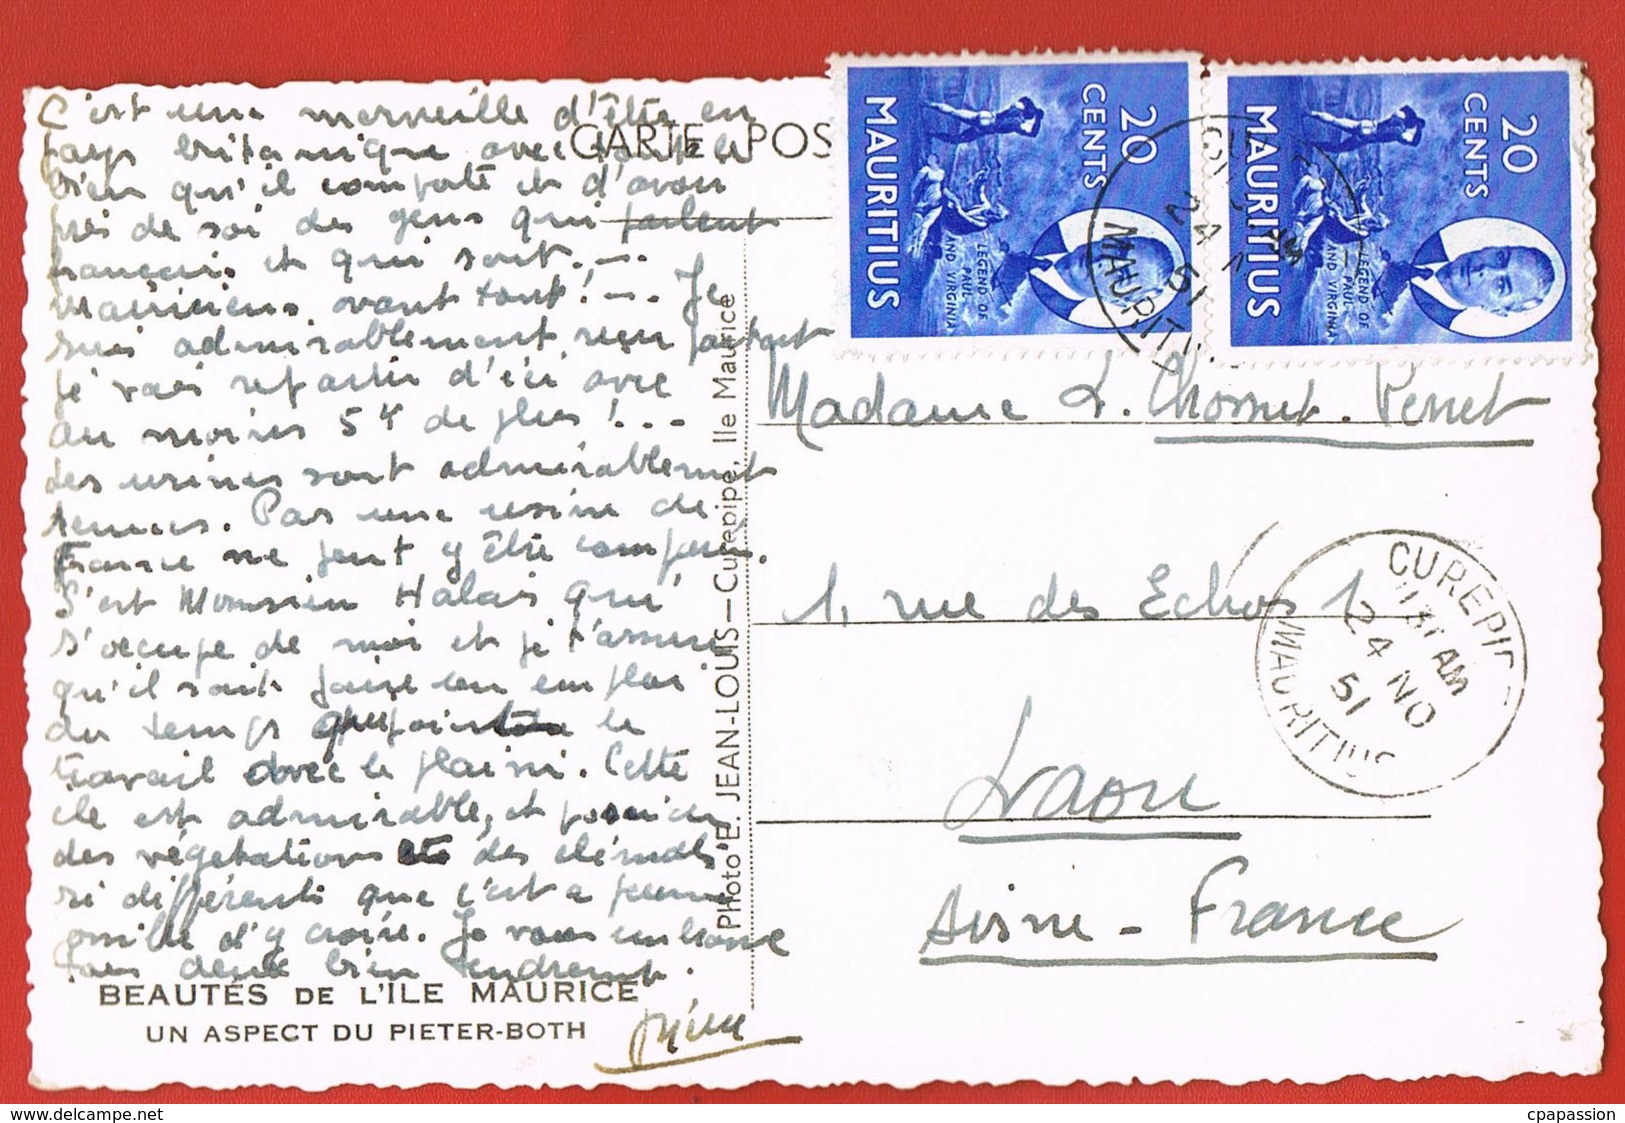 C'est une merveille d'être en
pays britanique avec tout le
bien qu'il comporte et d'avoir
près de soi des gens qui parlent
français. et qui sont. —
Mauriciens avant tout! — . Je
suis admirablement reçu partout
je vais repartir d'ici avec
au moins 5 K de plus ! . . .
des usines sont admirablement
tenues. Pas une usine de
France ne peut y être comparée.
C'est Monsieur Halais qui
s'occupe de moi et je t'assure
qu'il sait faire un emploi
du temps le
travail avec le plaisir. Cette
ile est admirable, et possède
des végétations des
si différents que c'est a peine
d'y croire. Je vous embrasse
tous deux bien tendrement.
BEAUTÉS DE L'ILE MAURICE
UN ASPECT DU PIETER-BOTH
Photo E. JEAN-LOUIS—Curepipe, Ile Maurice
CARTE POS
20 CENTS
MAURITIUS
LEGEND OF PAUL AND VIRGINIA
20 CENTS
MAURITIUS
LEGEND OF PAUL AND VIRGINIA
MAURITI
Madame L. Chossnet. Pernet
1, rue des Echos 1
CUREPIPE
AM
24 NO
51
MAURITIUS
Laon
Aisne - France
cpapassion